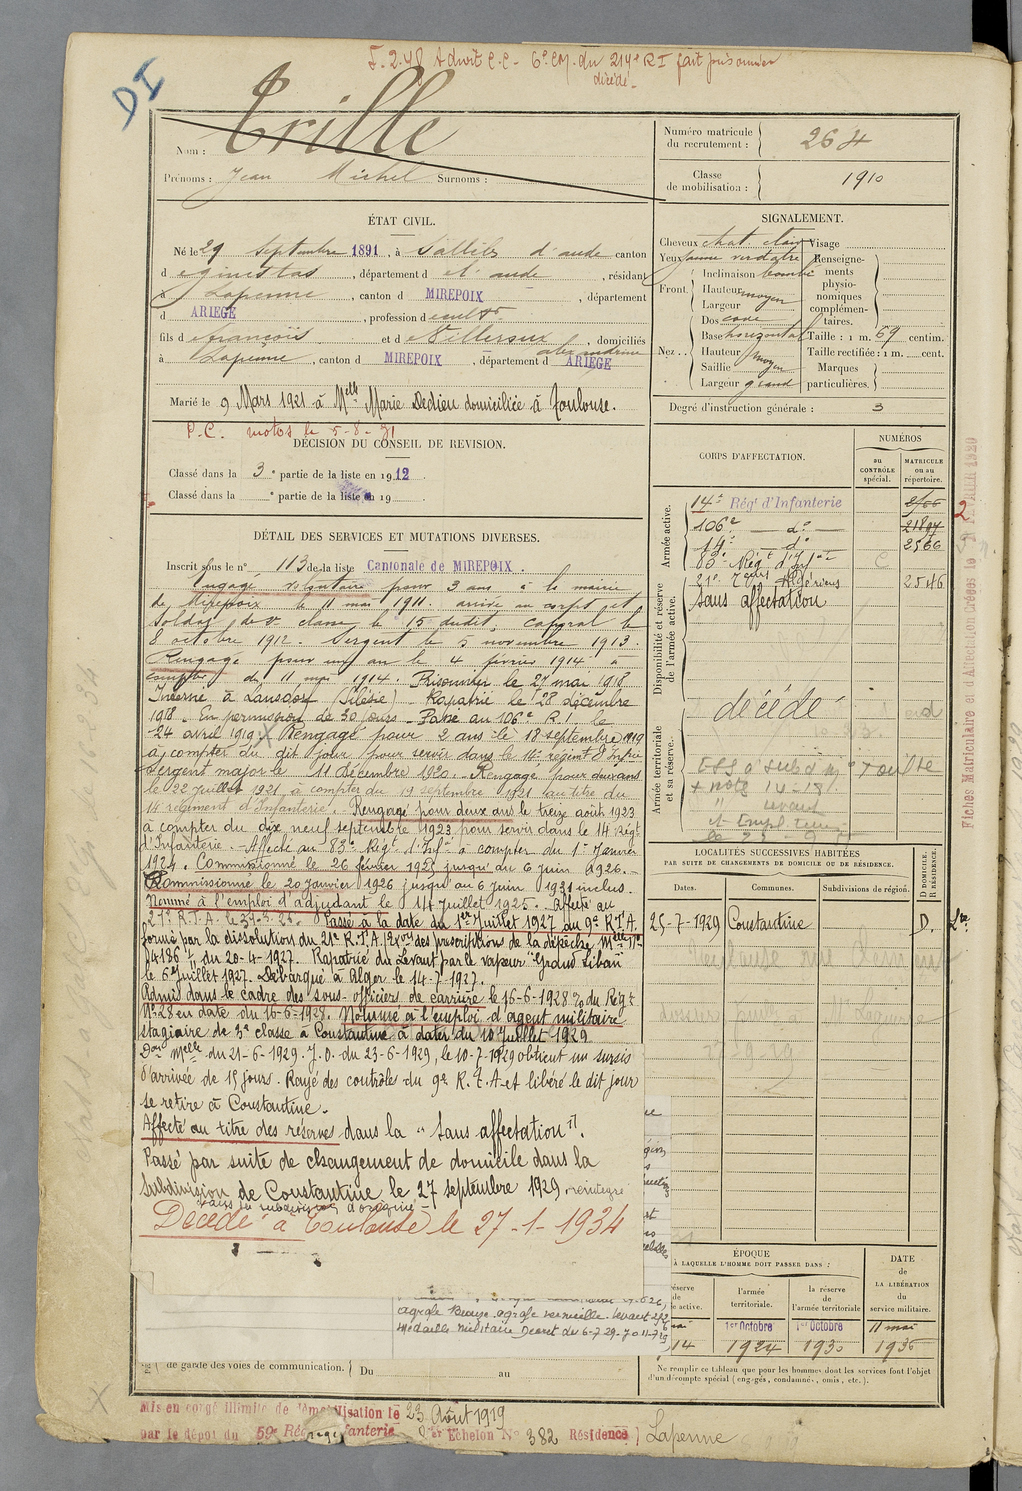 DI
F. 2.48 Adroit C.C. 6e CM. du 214e RI fait prisonnier
décédé
Nom : Trille
Prénoms : Jean Michel Surnoms :
Numéro matricule du recrutement : 264
Classe de mobilisation : 1910
ÉTAT CIVIL.
Né le 29 Septembre 1891, à Sallèles d'aude canton
d e ginestas, département d e l'aude, résidant
à Lapenne, canton d MIREPOIX, département
d ARIEGE, profession d
fils d e françois et d e Villeroux alexandrine, domiciliés
à Lapenne, canton d MIREPOIX, département d ARIEGE
Marié le 9 Mars 1921 à Melle Marie Dedieu domiciliée à Toulouse.
P.C. motos le 5-8-31
DÉCISION DU CONSEIL DE REVISION.
Classé dans la 3e partie de la liste en 1912
Classé dans la e partie de la liste en 19
DÉTAIL DES SERVICES ET MUTATIONS DIVERSES.
Inscrit sous le n° 113 de la liste Cantonale de MIREPOIX.
Engagé volontaire pour 3 ans à la mairie
de Mirepoix le 11 mai 1911. arrivé au corps et
soldat de 2e classe le 15 dudit, caporal le
8 octobre 1912. Sergent le 5 novembre 1913.
Rengagé pour un an le 4 février 1914 à
compter du 11 mai 1914. Prisonnier le 27 mai 1918
Interné à Lansdorf (Silésie) Rapatrié le 28 décembre
1918. En permission de 30 jours - Passé au 106e R.I. le
24 avril 1919. Rengagé pour 2 ans le 18 septembre 1919
à compter du dit jour pour servir dans le 14e régimt d'Infrie
Sergent major le 11 Décembre 1920. Rengagé pour deux ans
le 22 Juillet 1921 à compter du 19 septembre 1921 au titre du
14 régiment d'Infanterie. Rengagé pour deux ans le treize août 1923
à compter du dix neuf septembre 1923 pour servir dans le 14 Régt
d'Infanterie. Affecté au 83e Régt d'Infie à compter du 1er Janvier
1924. Commissionné le 26 février 1925 jusqu'au 6 Juin 1926.
Commissionné le 20 Janvier 1926 jusqu'au 6 Juin 1931 inclus.
Nommé à l'emploi d'adjudant le 14 Juillet 1925. Affecté au
21e R.T.A. le 31-3-26. Passé à la date du 1er Juillet 1927 au 9e R.T.A.
formé par la dissolution du 21e R.T.A. (Exon des prescriptions de la dépêche Melle n°
4186 du 20-4-1927. Rapatrié du Levant par le vapeur "Grand Liban"
le 6 Juillet 1927. Débarqué à Alger le 14-7-1927.
Admis dans le cadre des sous-officiers de carrière le 16-6-1928 % du Régt
N° 28 en date du 16-6-1928. Nommé à l'emploi d'agent militaire
stagiaire de 3e classe à Constantine à dater du 10 Juillet 1929
Don Melle du 21-6-1929. J.O. du 23-6-1929, le 10-7-1929 obtient un sursis
d'arrivée de 15 jours. Rayé des contrôles du 9e R.T.A et libéré le dit jour
se retire à Constantine.
Affecté au titre des réserves dans la "Sans affectation".
Passé par suite de changement de domicile dans la
Subdivision de Constantine le 27 septembre 1929 réintégré
dans la subdivision d'origine
Décédé à Toulouse le 27-1-1934
agrafe vermeille. Levant
Médaille militaire Décret du 6-7-29
de garde des voies de communication. Du au
SIGNALEMENT.
Cheveux chat. clair Visage
Yeux jaune verdâtre
Front. Inclinaison bombé
Hauteur moyen
Largeur
Nez.. Dos cave
Base horizontal
Hauteur moyen
Saillie moyen
Largeur grand
Renseignements physionomiques complémentaires.
Taille : 1 m. 69 centim.
Taille rectifiée : 1 m. cent.
Marques particulières.
Degré d'instruction générale : 3
CORPS D'AFFECTATION.
NUMÉROS
AU CONTRÔLE spécial.
MATRICULE ou au répertoire.
Armée active.
14e Régt d'Infanterie
106e — do —
21897
14e — do
2566
83e Régt d'Infie C
21e Tirs Algériens 2546
Disponibilité et réserve de l'armée active.
sans affectation
Armée territoriale et sa réserve.
décédé
LOCALITÉS SUCCESSIVES HABITÉES
PAR SUITE DE CHANGEMENTS DE DOMICILE OU DE RÉSIDENCE.
Dates. Communes. Subdivisions de région. D DOMICILE, R RÉSIDENCE.
25-7-1929 Constantine D.
ÉPOQUE
À LAQUELLE L'HOMME DOIT PASSER DANS :
l'armée territoriale.
la réserve de l'armée territoriale
DATE de LA LIBÉRATION du service militaire.
1er Octobre 1er Octobre 11 mai
14 1924 1930 1936
Ne remplir ce tableau que pour les hommes dont les services font l'objet
d'un décompte spécial (engagés, condamnés, omis, etc.).
Mis en congé illimité de démobilisation le 23 Août 1919
par le dépôt du 59e Rég Infanterie Echelon N° 382 Résidence) Lapenne
Fiches Matriculaire et d'Affectation Créées le FÉVRIER 1920